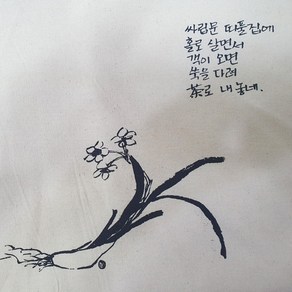 싸립문 따돌집에
홀로 살면서
객이 오면
쑥을 다려
茶로 내놓네.